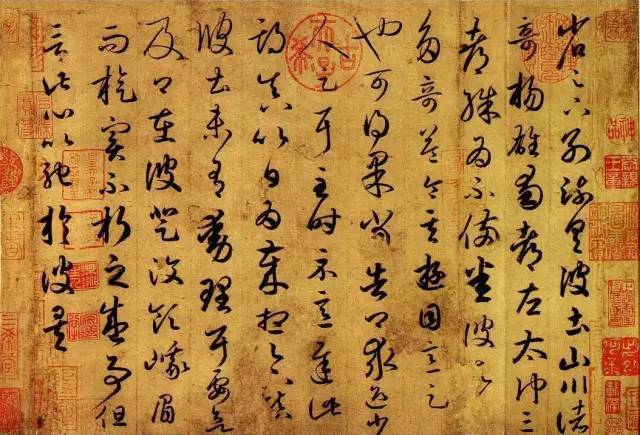 省足下別疏具彼土山川諸
奇揚雄蜀都左太沖三
都殊為不備悉彼故為
多奇益令其遊目意足
也可得果當告卿求迎少
人足耳至時示意遲此
期真以日為歲想足下鎮
彼土未有動理耳要欲
及卿在彼登汶領峨眉
而旋實不朽之盛事但
言此心以馳於彼矣